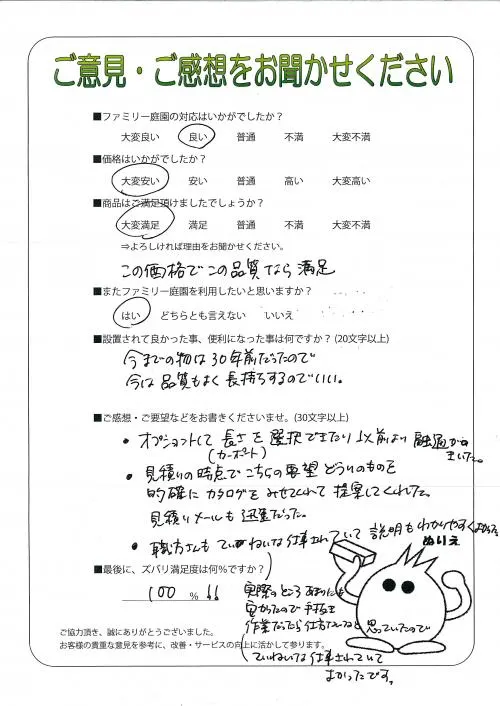 ご意見・ご感想をお聞かせください
■ファミリー庭園の対応はいかがでしたか？
大変良い 良い 普通 不満 大変不満
■価格はいかがでしたか？
大変安い 安い 普通 高い 大変高い
■商品はご満足頂けましたでしょうか？
大変満足 満足 普通 不満 大変不満
⇒よろしければ理由をお聞かせください。
この価格でこの品質なら満足
■またファミリー庭園を利用したいと思いますか？
はい どちらとも言えない いいえ
■設置されて良かった事、便利になった事は何ですか？(20文字以上)
今までの物は30年前だったので
今は品質もよく長持ちするのでいい。
■ご感想・ご要望などをお書きくださいませ。(30文字以上)
・オプションとして長さを選択できたり以前より融通が
(カーポート)
きいた。
・見積りの時点でこちらの要望どういうものを
的確にカタログをみせてくれて提案してくれた。
見積りメールも迅速だった。
・職方さんもていねいな仕事されていて説明もわかりやすくよかった
ぬりえ
■最後に、ズバリ満足度は何%ですか？
100 % !!
実際のところあまりにも
安かったので手抜き
作業だったら仕方ないなと思っていたので
ていねいな仕事されていて
よかったです。
ご協力頂き、誠にありがとうございました。
お客様の貴重な意見を参考に、改善・サービスの向上に活かして参ります。